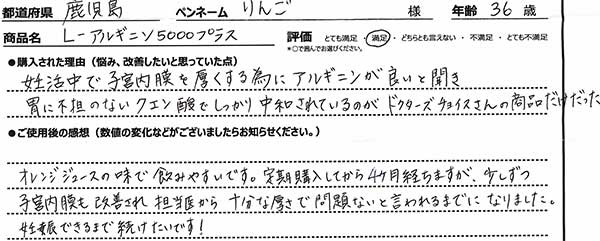 都道府県 鹿児島 ペンネーム りんご 様 年齢 36 歳
商品名 L-アルギニン5000プラス 評価 とても満足・満足・どちらとも言えない・不満足・とても不満足
*○で囲んでお選びください。
●購入された理由（悩み、改善したいと思っていた点）
妊活中で子宮内膜を厚くする為にアルギニンが良いと聞き
胃に不担のないクエン酸でしっかり中和されているのがドクターズチョイスさんの商品だけだった
●ご使用後の感想（数値の変化などがございましたらお知らせください。）
オレンジジュースの味で飲みやすいです。定期購入してから4ヶ月経ちますが、少しずつ
子宮内膜も改善され担当医から十分な厚さで問題ないと言われるまでになりました。
妊娠できるまで続けたいです!